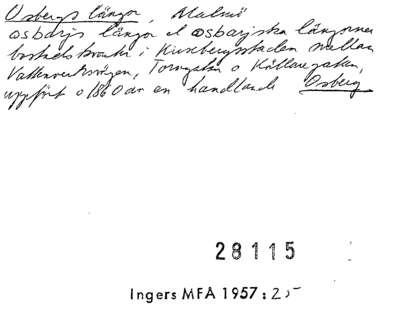 Osbergs längor, Malmö
osbarjs längor el osbarjska längorna
bostadskvarter i Kirsebergsstaden mellan
Vattenverksvägen, Torngatan o Källaregatan,
uppfört o 1860 av en handlande Osberg
28115
Ingers MFA 1957: 2,-